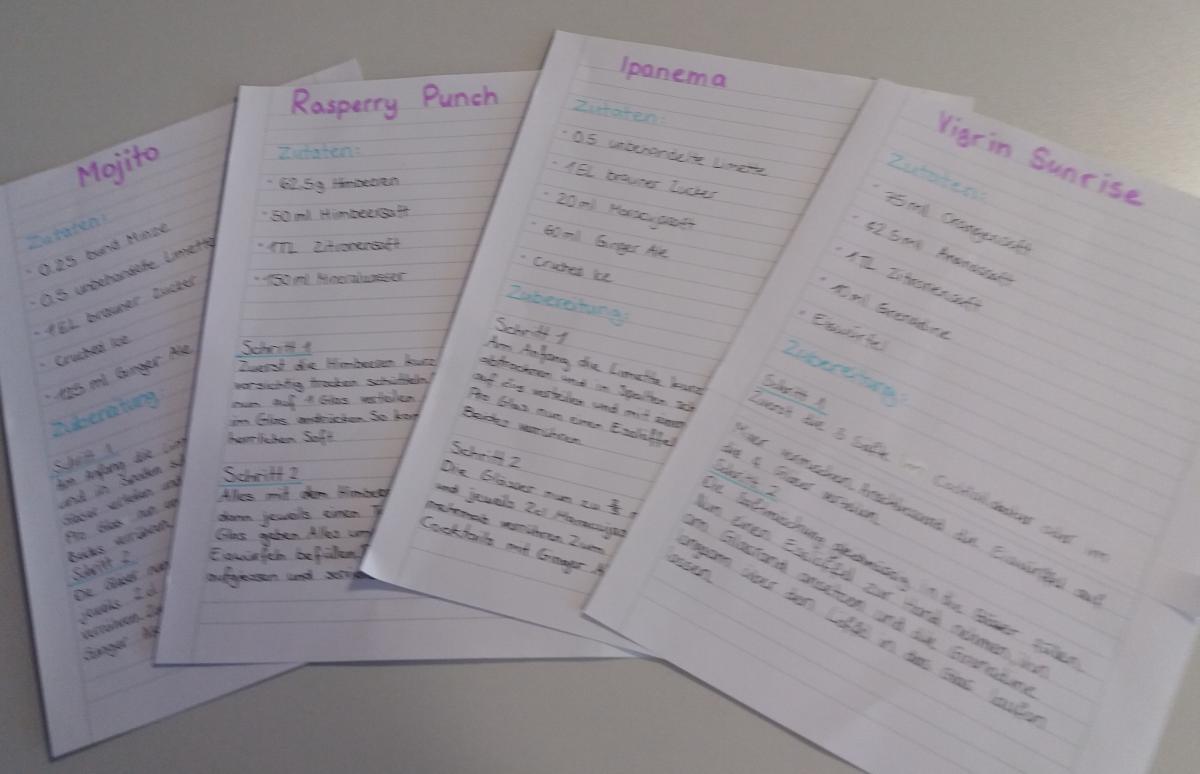 Mojito
Zutaten:
- 0.25 bund Minze
- 0.5 unbehandelte Limette
- 1EL brauner Zucker
- Cruched Ice
- 125 ml Ginger Ale
Zubereitung:
Schritt 1
Am Anfang die
und in
verteilen und
Pro Glas nun
verrühren
Schritt 2
Die Gläser nun
jeweils 2 cl
verrühren
Ginger
Rasperry Punch
Zutaten:
- 62.5g Himbeeren
- 50 ml Himbeersaft
- 1TL Zitronensaft
- 150 ml Mineralwasser
Schritt 1
Zuerst die Himbeeren kurz
vorsichtig trocken schütteln
nun auf 1 Glas verteilen
im Glas andrücken. So kom
herrlichen Saft.
Schritt 2
Alles mit dem Himbee
dann jeweils einen T
Glas geben. Alles um
Eiswürfeln befüllen.
aufgiessen und
Ipanema
Zutaten:
- 0.5 unbehandelte Limette
- 1EL brauner Zucker
- 20 ml Maracujasaft
- 60 ml Ginger Ale
- Cruched Ice
Zubereitung:
Schritt 1
Am Anfang die Limette kurz
abtrocknen und in Spalten
auf die verteilen und mit einem
Pro Glas nun einen Esslöffel
Beides verrühren.
Schritt 2
Die Gläser nun zu 2/3 m
und jeweils 2cl Maracujas
mehrmals verrühren. Zum
Cocktails mit Ginger A
Vigrin Sunrise
Zutaten:
- 75 ml Orangensaft
- 62.5 ml Ananassaft
- 1TL Zitronensaft
- 10 ml Grenadine
- Eiswürfel
Zubereitung:
Schritt 1
Zuerst die 3 Säfte im Cocktailshaker oder im
Mixer vermischen. Anschliessend die Eiswürfel auf
die 4 Gläser verteilen.
Schritt 2
Die Saftmischung gleichmässig in die Gläser füllen.
Nun einen Esslöffel zur Hand nehmen, ihn
am Glasrand ansetzen und die Grenadine
langsam über den Löffel in das Glas laufen
lassen.